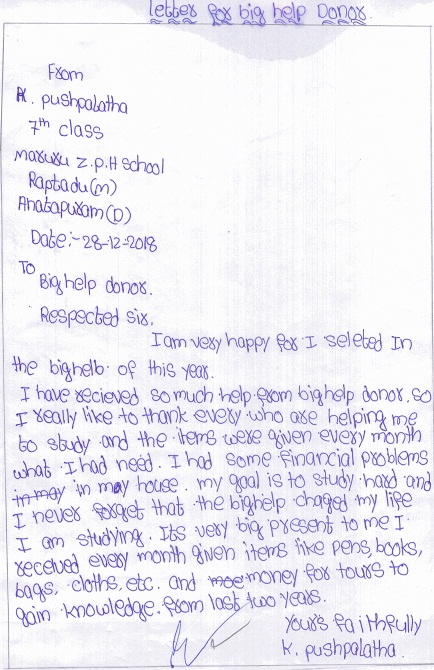 letter for big help Donor.
From
K. pushpalatha
7th class
maruru z.p.H school
Raptadu(m)
Anatapuram(D)
Date:-28-12-2018
To
Bighelp donor.
Respected sir,
I am very happy for I seleted In
the bighelb of this year.
I have recieved so much help from bighelp donor, so
I really like to thank every who are helping me
to study and the items were given every month
what I had need. I had some financial problems
in may in may house. my goal is to study hard and
I never forget that the bighelp chaged my life
I am studying. Its very big present to me I
received every month given items like pens, books,
bags, cloths, etc. and moe money for tours to
gain knowledge from last two years.
Your's faithfully
K. pushpalatha.